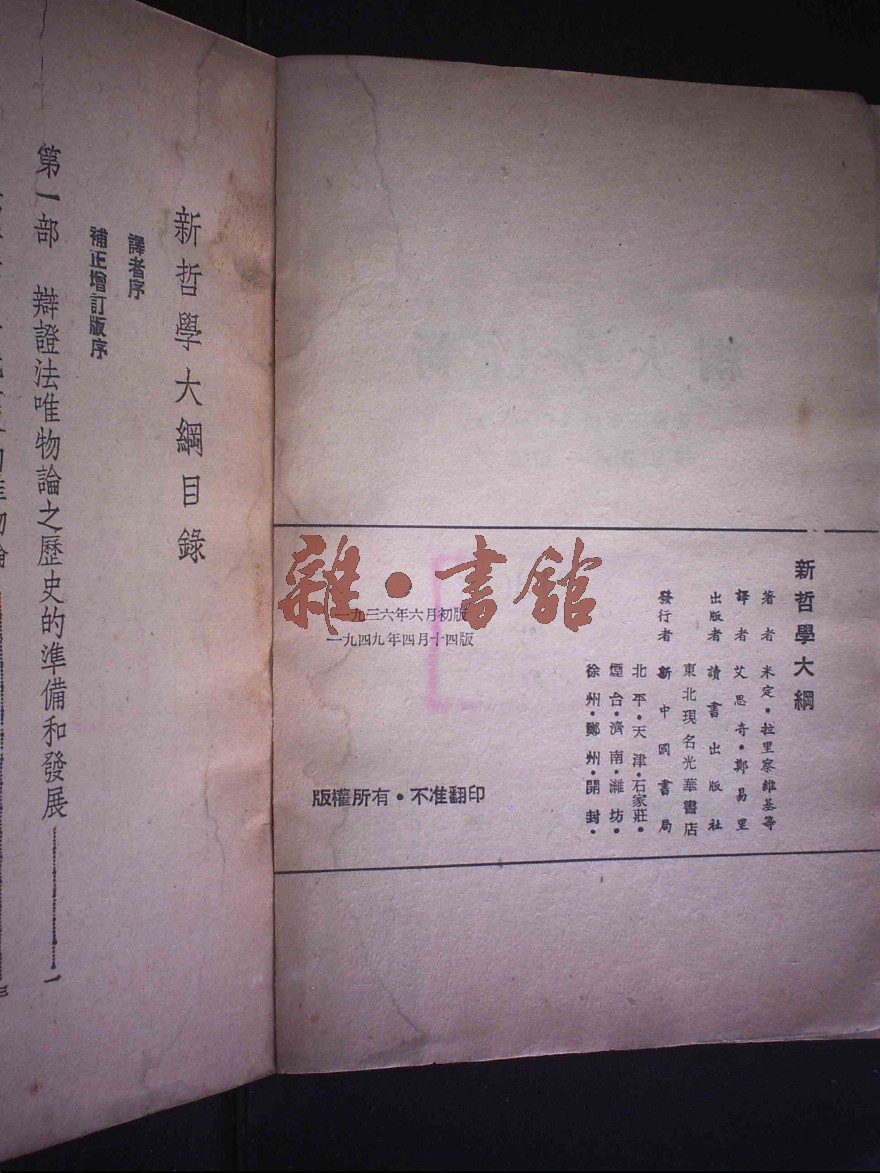 新哲學大綱
著者 米定·拉里察維基等
譯者 艾思奇·鄭易里
出版者 讀書出版社
東北現名光華書店
發行者 新中國書局
北平·天津·石家莊·
煙台·濟南·濰坊·
徐州·鄭州·開封·
一九三六年六月初版
一九四九年四月十四版
版權所有·不准翻印
雜·書館
新哲學大綱目錄
譯者序
補正增訂版序
第一部 辯證法唯物論之歷史的準備和發展 一